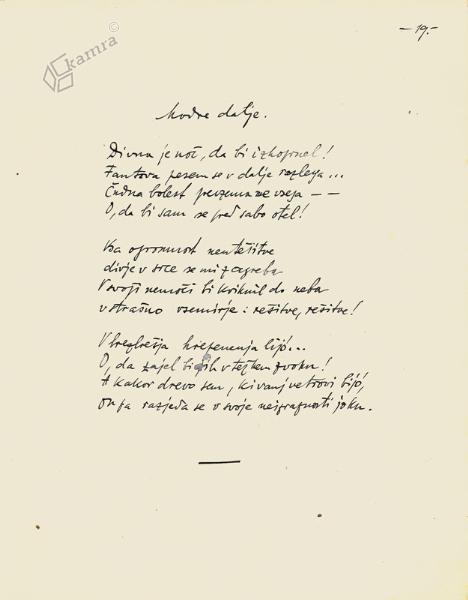 kamra ©
– 19. –
Modre dalje.
Divna je noč, da bi izkoprnel!
Fantova pesem se v dalje razlega...
Čudna bolest prevzema me vsega – –
O, da bi sam se pred sabo otel!
Vsa ogromnost neutešitve
divje v srce se mi zagreba
V svoji nemoči bi kriknil do neba
v strašno vsemirje: rešitve, rešitve!
V brezbrežja hrepenenja lijó...
O, da zajel bi jih v težkem zvoku!
A kakor drevo sem, ki vanj vetrovi bijó,
on pa razjeda se v svoje neizpraznosti joku.